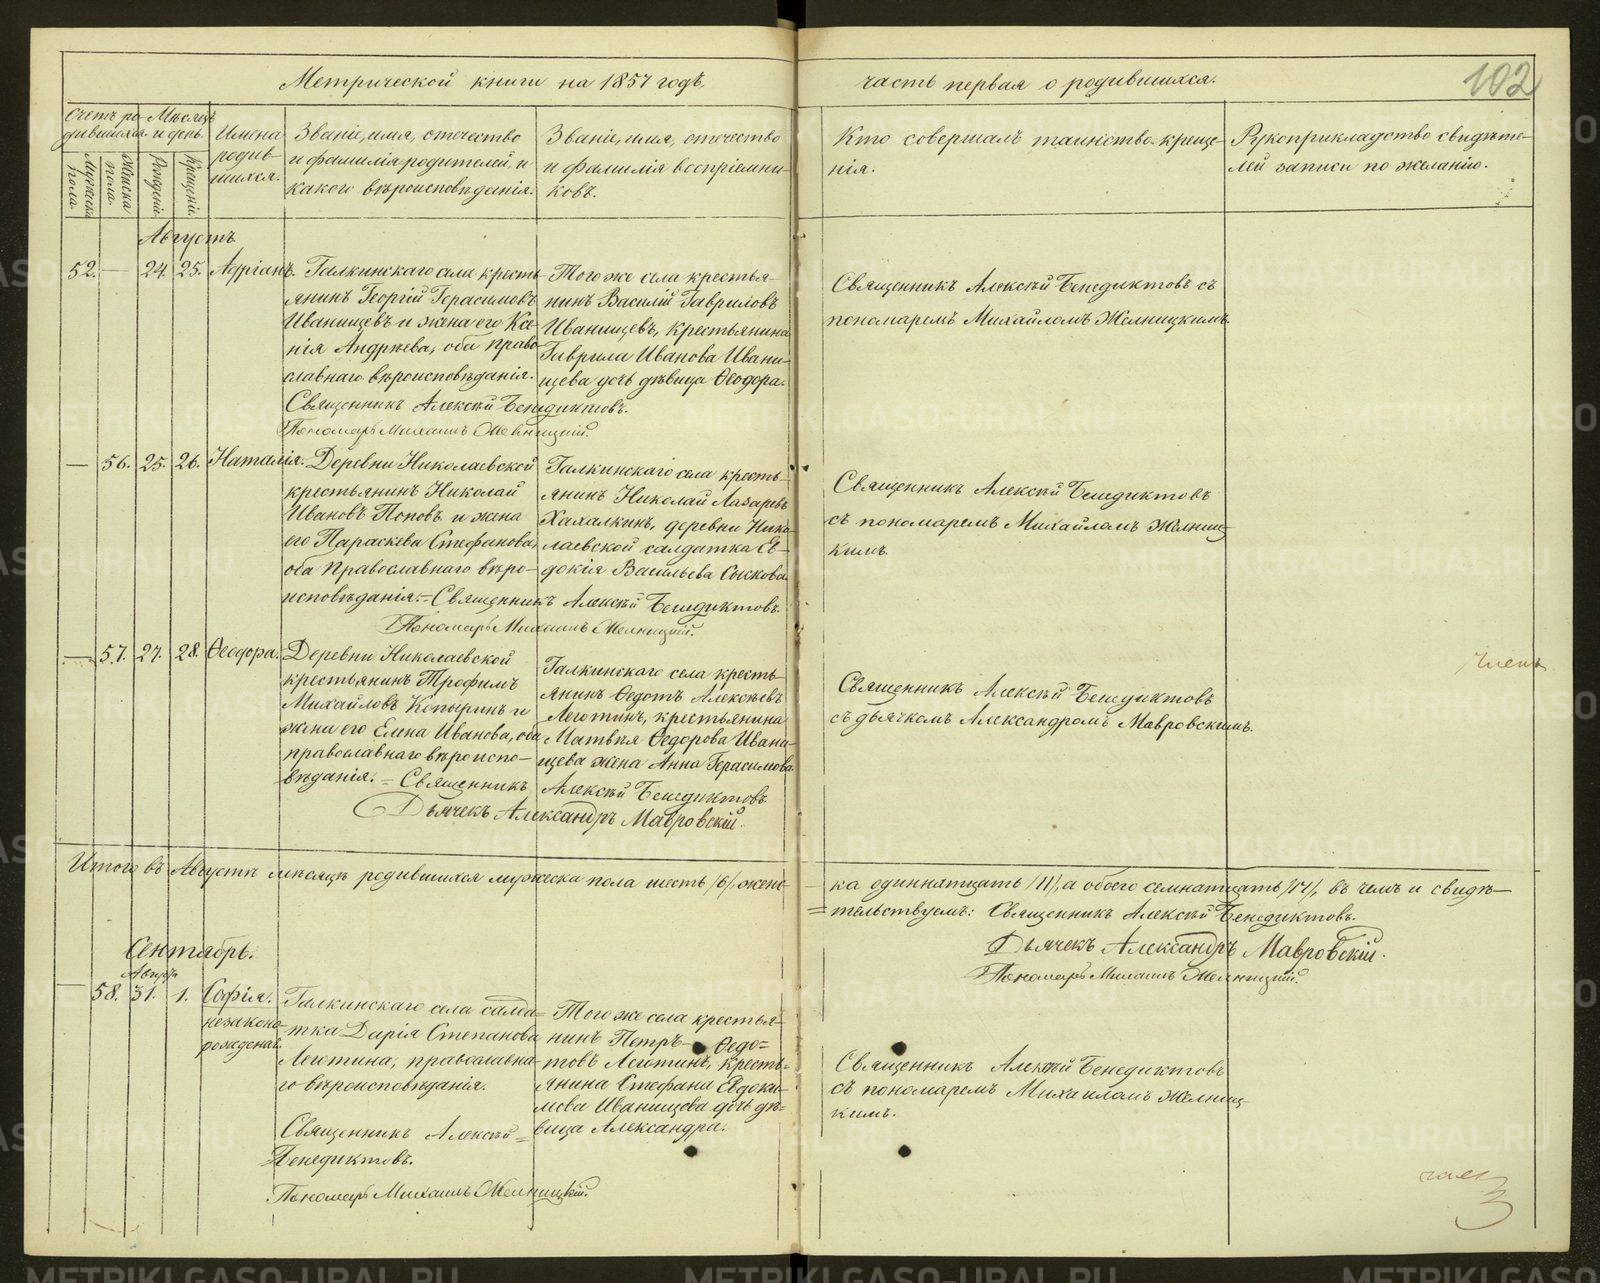 Метрической книги на 1857 годъ,
часть первая о родившихся.
102
Счетъ ро-
дившихся.
Мѣсяцъ
и день.
Мужеска
пола.
Женска
пола.
Рожденія.
Крещенія.
Имена
родив-
шихся.
Званіе, имя, отечество
и фамилія родителей и
какого вѣроисповѣданія.
Званіе, имя, отечество
и фамилія воспріемни-
ковъ.
Кто совершалъ таинство креще-
нія.
Рукоприкладство свидѣте-
лей записи по желанію.
Августъ
52. — 24. 25. Адріанъ.
Галкинскаго села кресть-
янинъ Георгій Герасимовъ
Иванищевъ и жена его Ксе-
нія Андрѣева, оба право-
славнаго вѣроисповѣданія.
Священникъ Алексѣй Бенедиктовъ.
Пономарь Михаилъ Желницкій.
Того же села крестья-
нинъ Василій Гавриловъ
Иванищевъ, крестьянина
Гаврила Иванова Ивани-
щева дочь дѣвица Ѳеодора.
Священникъ Алексѣй Бенедиктовъ съ
пономаремъ Михайломъ Желницкимъ.
— 56. 25. 26. Наталія.
Деревни Николаевской
крестьянинъ Николай
Ивановъ Поповъ и жена
его Параскева Стефанова,
оба Православнаго вѣро-
исповѣданія. = Священникъ Алексѣй Бенедиктовъ.
Пономарь Михаилъ Желницкій.
Галкинскаго села кресть-
янинъ Николай Лазаревъ
Хахалкинъ, деревни Нико-
лаевской солдатка Ев-
докія Васильева Сыскова.
Священникъ Алексѣй Бенедиктовъ
съ пономаремъ Михайломъ Желниц-
кимъ.
— 57. 27. 28. Ѳеодора.
Деревни Николаевской
крестьянинъ Трофимъ
Михайловъ Копыринъ и
жена его Елена Иванова, оба
православнаго вѣроиспо-
вѣданія. = Священникъ Алексѣй Бенедиктовъ
Дьячекъ Александръ Мавровскій.
Галкинскаго села кресть-
янинъ Ѳедотъ Алексѣевъ
Леготинъ, крестьянина
Матвѣя Ѳедорова Ивани-
щева жена Анна Герасимова.
Священникъ Алексѣй Бенедиктовъ
съ дьячкомъ Александромъ Мавровскимъ.
Членъ
Итого въ Августѣ мѣсяцѣ родившихся мужеска пола шесть /6/, женс-
ка одиннатцать /11/, а обоего семнатцать /17/, въ чемъ и свидѣ-
тельствуемъ: Священникъ Алексѣй Бенедиктовъ.
Дьячекъ Александръ Мавровскій.
Пономарь Михаилъ Желницкій.
Сентябрь.
Август.
— 58. 31. 1. Софія.
незаконо-
рожденая.
Галкинскаго села салда-
тка Дарія Степанова
Леготина, православна-
го вѣроисповѣданія.
Священникъ Алексѣй
Бенедиктовъ.
Пономарь Михаилъ Желницкій.
Того же села крестья-
нинъ Петръ Ѳедо=
товъ Леготинъ, кресть=
янина Стефана Евдоки-
мова Иванищева дочь дѣ=
вица Александра.
Священникъ Алексѣй Бенедиктовъ
съ пономаремъ Михаиломъ Желниц-
кимъ.
METRIKI.GASO-URAL.RU